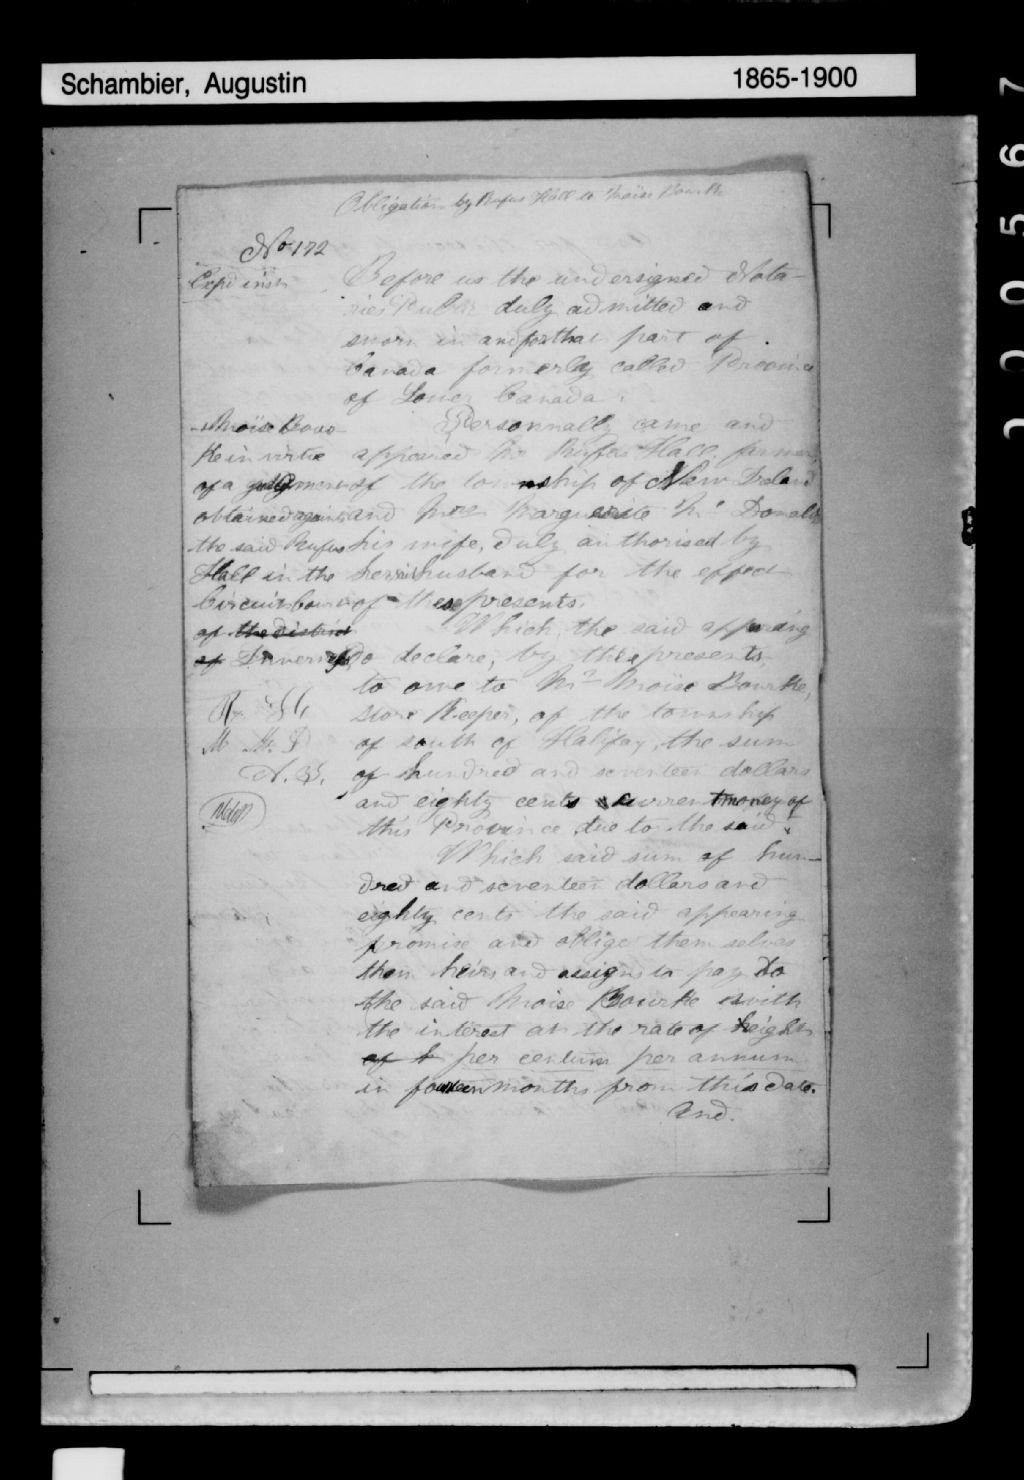 Schambier, Augustin
1865-1900
Obligation by Rufus Hall to Moïse Bourke
No 172
Before us the undersigned Nota-
ries Public duly admitted and
sworn in and for that part of
Canada formerly called Province
of Lower Canada.
Personnally came and
appeared Mr Rufus Hall, farmer,
of the township of New Ireland
and Mrs Marguerite Mc Donald
his wife, duly authorised by
her said husband for the effect
of these presents.
Which, the said appearing
Do declare, by these presents,
to owe to Mr Moïse Bourke,
store Keeper, of the township
of south of Halifax, the sum
of hundred and seventeen dollars
and eighty cents current money of
this Province due to the said
Which said sum of hun-
dred and seventeen dollars and
eighty cents the said appearing
promise and oblige them selves
their heirs and assigns to pay to
the said Moïse Bourke with
the interest at the rate of height
of per centum per annum
in fourteen months from this date.
And.
Moïse Bour-
ke in virtue
of a judgment
obtained against
the said Rufus
Hall in the
Circuit Court
of the district
of Inverness
R. H.
M. Mc. D
A. S.
000567